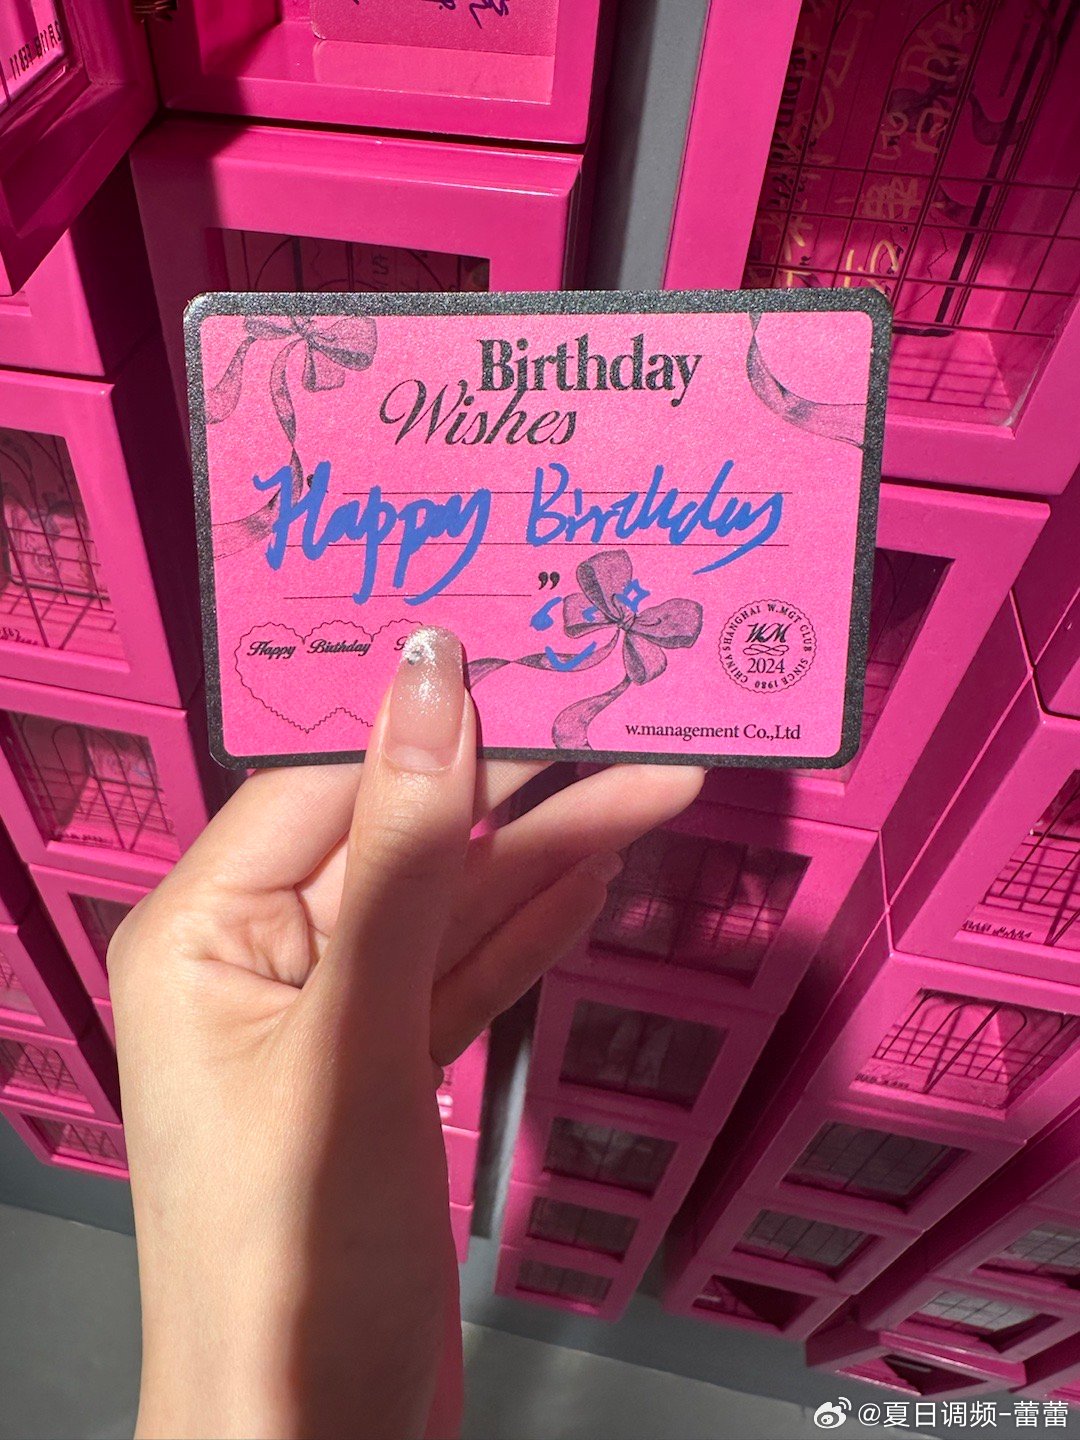 Birthday
Wishes
Happy Birthday
”
Happy Birthday
CHINA SHANGHAI W.MGT CLUB SINCE 1980
WM
2024
w.management Co.,Ltd
@夏日调频-蕾蕾